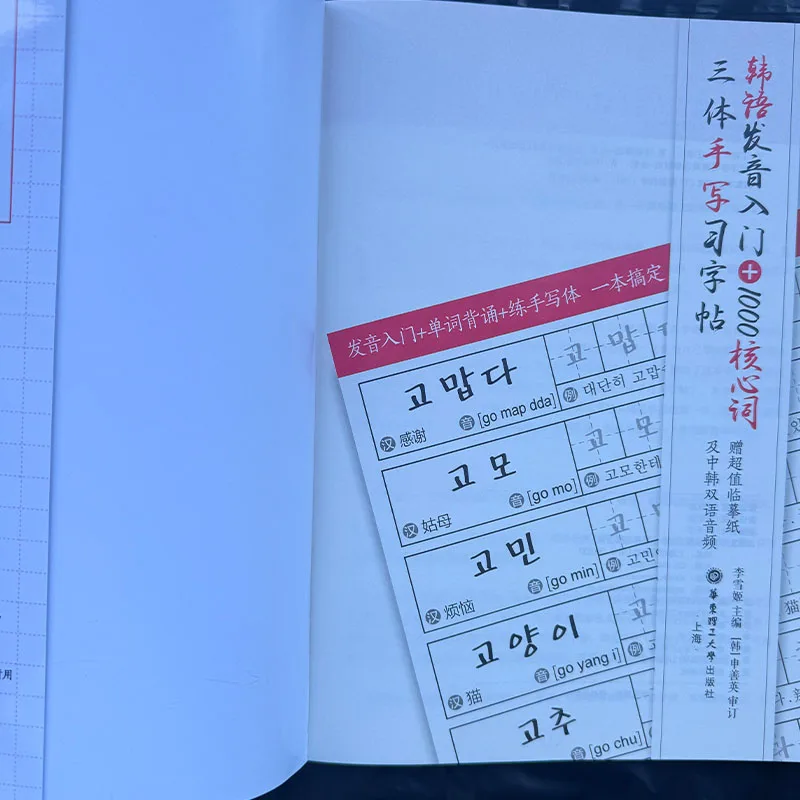 韩语发音入门+1000核心词
三体手写习字帖
赠超值临摹纸
及中韩双语音频
李雪姬 主编 [韩]申善英 审订
华东理工大学出版社
·上海·
发音入门+单词背诵+练手写体 一本搞定
고맙다
汉 感谢 音 [go map dda]
고 맙
例 대단히 고맙
고모
汉 姑母 音 [go mo]
고 모
例 고모한테
고민
汉 烦恼 音 [go min]
고
例 고민
고양이
汉 猫 音 [go yang i]
고
例
고추
音 [go chu]
猫
用